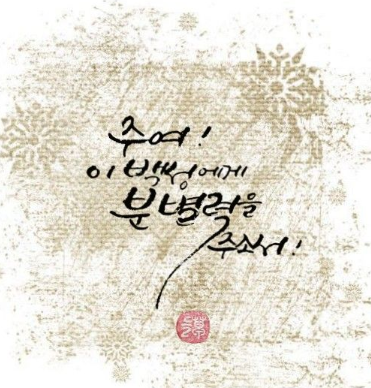 주여!
이 백성에게
분별력을
주소서!